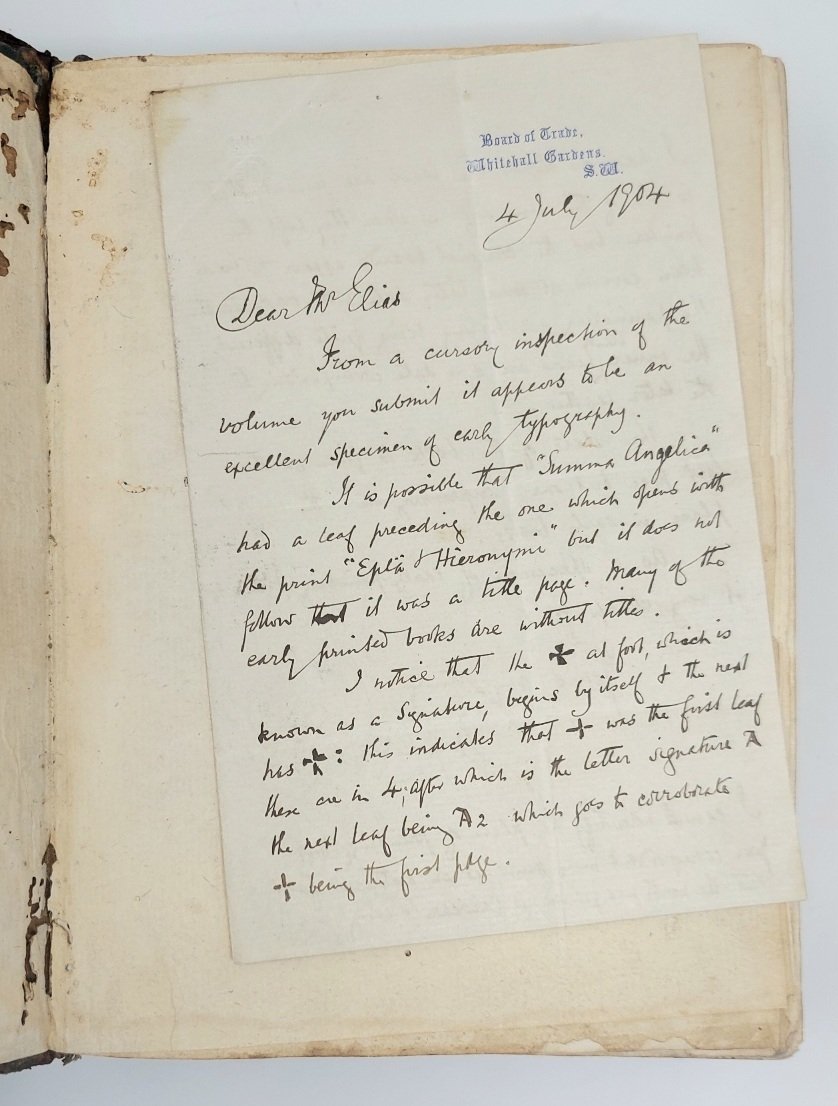 Board of Trade,
Whitehall Gardens.
S.W.
4 July 1904
Dear Mr Elias
From a cursory inspection of the
volume you submit it appears to be an
excellent specimen of early typography.
It is possible that "Summa Angelica"
had a leaf preceding the one which opens with
the print "Eplā & Hieronymi" but it does not
follow that it was a title page. Many of the
early printed books are without titles.
I notice that the ✠ at foot, which is
known as a Signature, begins by itself & the next
has ✠: this indicates that ✠ was the first leaf
these are in 4; after which is the letter signature A
the next leaf being A2 which goes to corroborate
✠ being the first page.